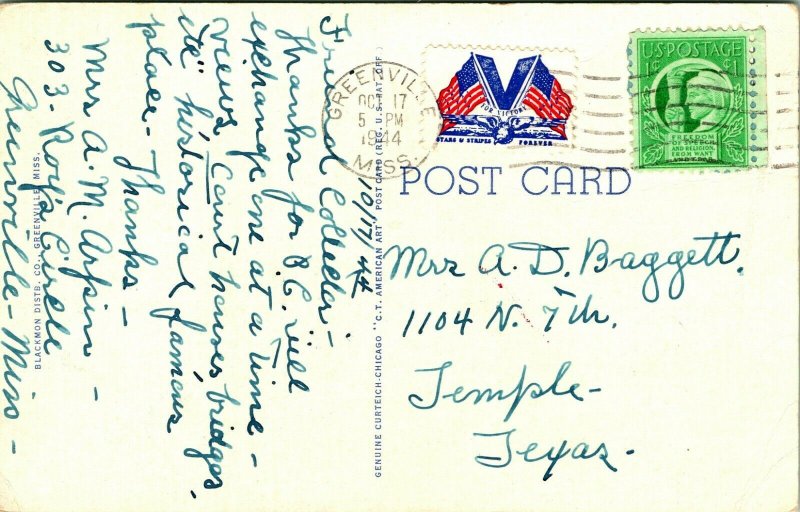 Friend Collector -
Thanks for P.C. will
exchange one at a time -
views, Court houses, bridges,
etc" historical, famous
place - Thanks -
Mrs A. M. Arpin -
303 - Roy's Circle
Greenville - Miss -
10/17/44
BLACKMON DISTB. CO., GREENVILLE, MISS.
GENUINE CURTEICH-CHICAGO "C.T. AMERICAN ART" POST CARD (REG. U.S. PAT. OFF.)
GREENVILLE
OCT 17
5 PM
1944
MISS.
V
FOR VICTORY
STARS & STRIPES FOREVER
U.S. POSTAGE
1¢ ¢1
FREEDOM
OF SPEECH
AND RELIGION,
FROM WANT
AND FEAR
POST CARD
Mrs A. D. Baggett.
1104 N. 7th.
Temple -
Texas.